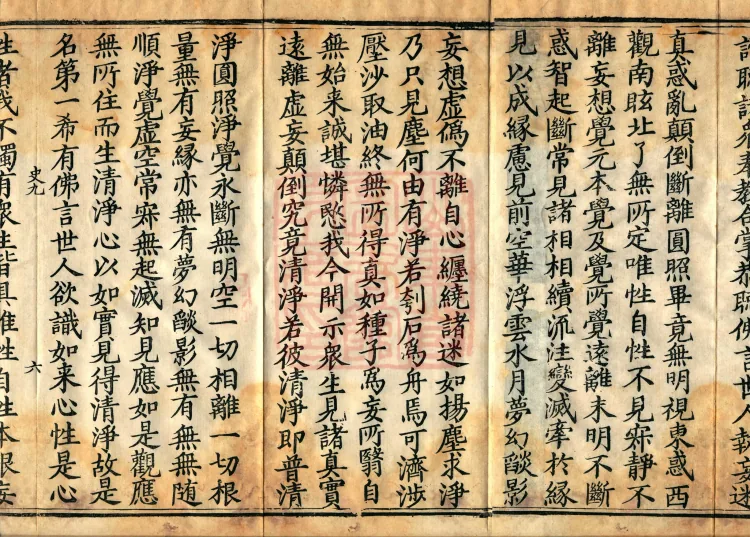 聽佛言世人執妄迷
真惑亂顛倒斷離圓照畢竟無明視東惑西
觀南眩北了無所定唯性自性不見寂靜不
離妄想覺元本覺及覺所覺遠離未明不斷
惑智起斷常見諸相相續流注變滅牽於緣
見以成緣慮見前空華浮雲水月夢幻燄影
妄想虛偽不離自心纏繞諸迷如揚塵求淨
乃只見塵何由有淨若刳石爲舟焉可濟涉
壓沙取油終無所得真如種子爲妄所翳自
無始来誠堪憐愍我今開示衆生見諸真實
遠離虛妄顛倒究竟清淨若彼清淨即普清
淨圓照淨覺永斷無明空一切相離一切根
量無有妄緣亦無有夢幻燄影無有無無随
順淨覺虛空常寂無起滅知見應如是觀應
無所住而生清淨心以如實見得清淨故是
名第一希有佛言世人欲識如来心性是心
史九 六
生者我不獨有衆生皆具唯性自性本根妄